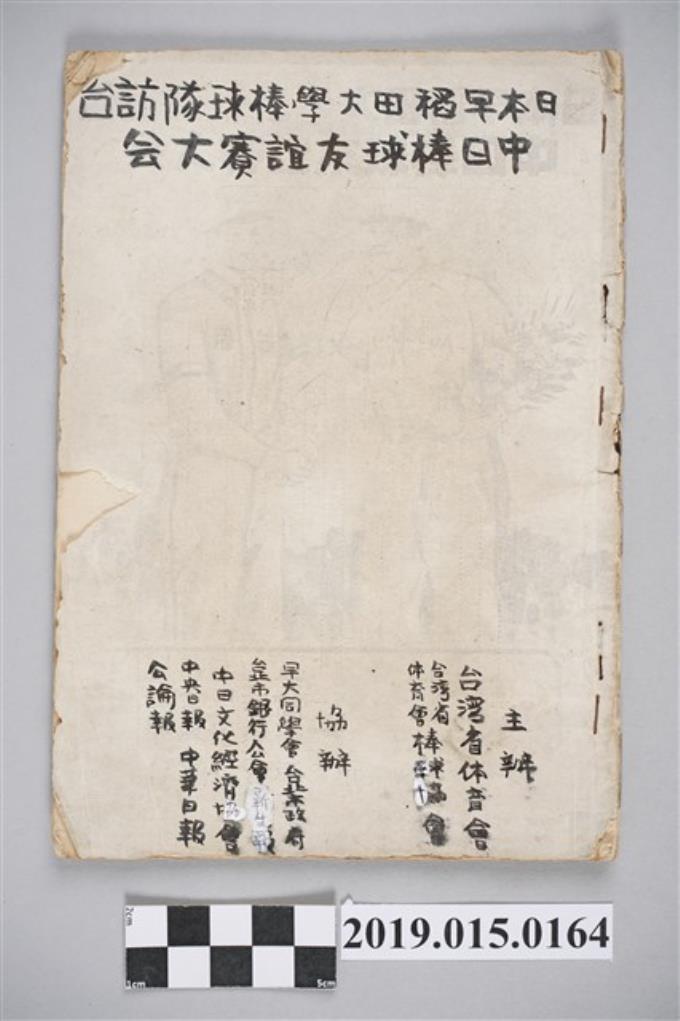 日本早稻田大學棒球隊訪台
中日棒球友誼賽大会
主辦
台湾省体育會
台湾省棒球協會
体育會棒
協辦
早大同學會 台北市政府
台北市銀行公會 新生報
中日文化經濟協會
中央日報 中華日報
公論報
2cm
1cm
5cm
2019.015.0164